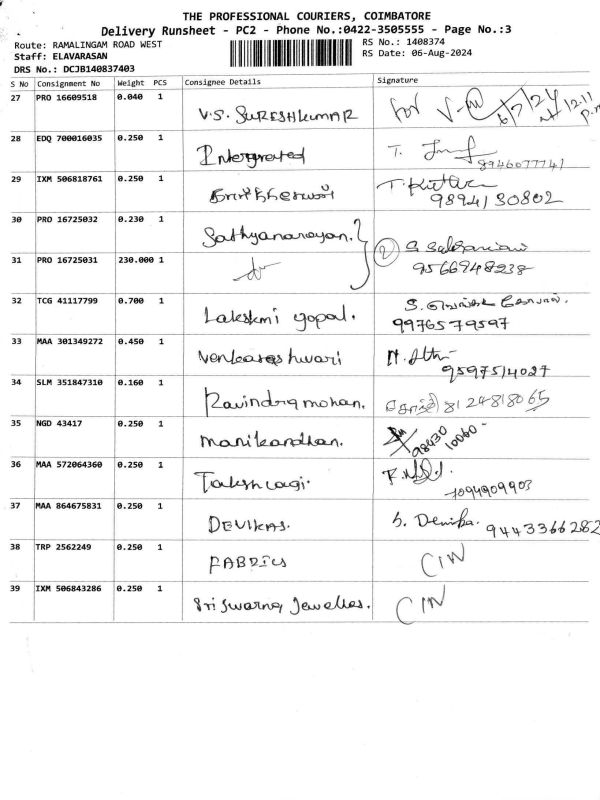 THE PROFESSIONAL COURIERS, COIMBATORE
Delivery Runsheet - PC2 - Phone No.:0422-3505555 - Page No.:3
Route: RAMALINGAM ROAD WEST
RS No.: 1408374
Staff: ELAVARASAN
RS Date: 06-Aug-2024
DRS No.: DCJB140837403
S No Consignment No Weight PCS Consignee Details Signature
27 PRO 16609518 0.040 1 V.S. SURESHKUMAR for
28 EDQ 700016035 0.250 1 Intergrated T. 8946077741
29 IXM 506818761 0.250 1 9894130802
30 PRO 16725032 0.230 1 Sathyanarayan. 2
31 PRO 16725031 230.000 1 9566948238
32 TCG 41117799 0.700 1 Lakskmi gopal. 9976579597
33 MAA 301349272 0.450 1 Venkateshwari 9597514027
34 SLM 351847310 0.160 1 Ravindra mohan. 8124818065
35 NGD 43417 0.250 1 Manikandhan. 98430 10060-
36 MAA 572064360 0.250 1 7094909903
37 MAA 864675831 0.250 1 DEVIKAS. S. Devika. 9443366282
38 TRP 2562249 0.250 1 FABRICS CIN
39 IXM 506843286 0.250 1 Sri Swarna Jewelles. CIN